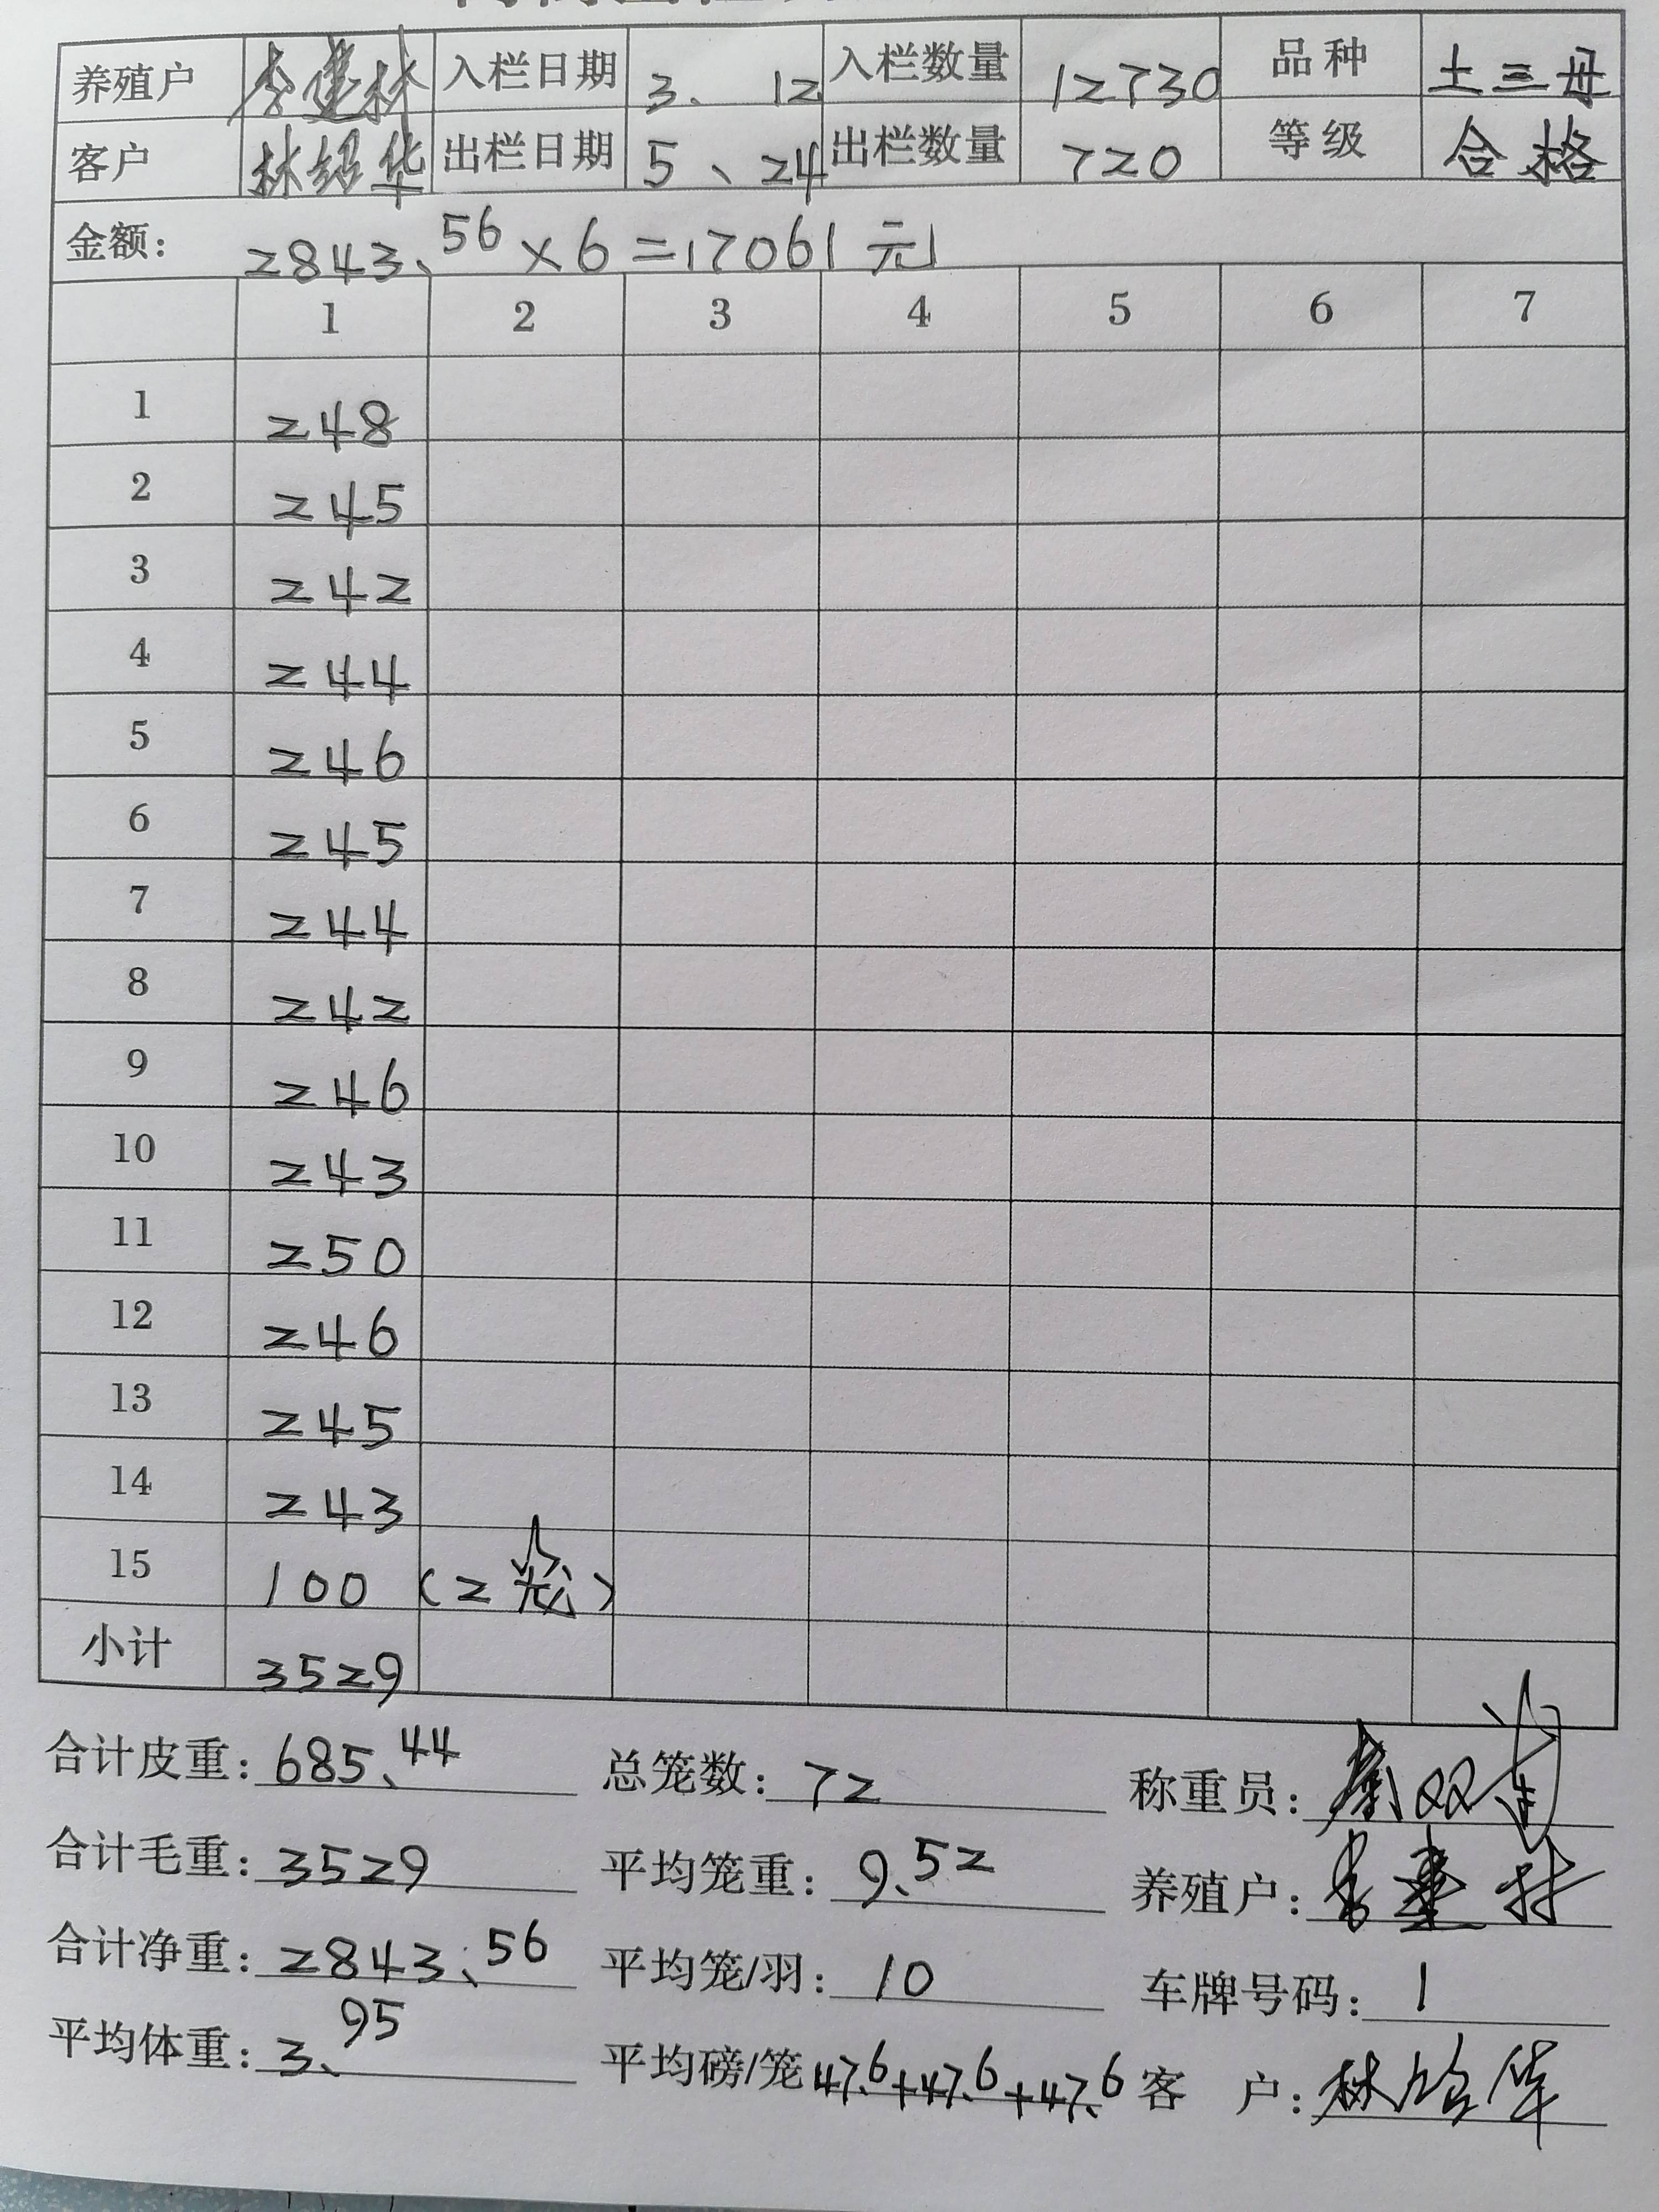 养殖户 李建林 入栏日期 3、12 入栏数量 12730 品种 土三母
客户 林绍华 出栏日期 5、24 出栏数量 720 等级 合格
金额: 2843、56×6=17061元
1 2 3 4 5 6 7
1 248
2 245
3 242
4 244
5 246
6 245
7 244
8 242
9 246
10 243
11 250
12 246
13 245
14 243
15 100 (2笼)
小计 3529
合计皮重: 685、44 总笼数: 72 称重员:
合计毛重: 3529 平均笼重: 9、52 养殖户: 李建林
合计净重: 2843、56 平均笼/羽: 10 车牌号码: 1
平均体重: 3、95 平均磅/笼 47、6+47、6+47、6 客 户: 林绍华